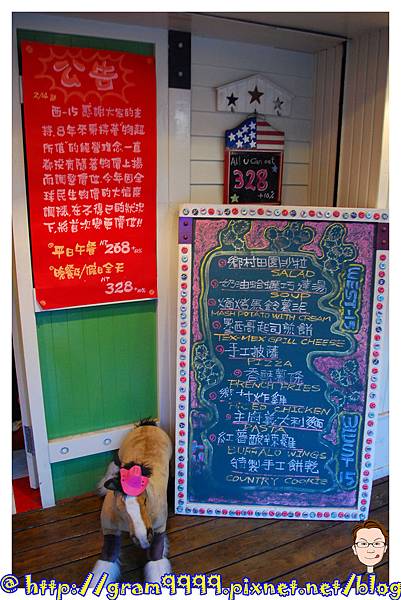 公告
2/14
西-15感謝大家的支
持,8年來秉持著"物超
所值"的經營理念一直
都沒有隨著物價上揚
而調整價位,今年因全
球民生物價的大幅度
調漲,在不得已的狀況
下,將首次變更價位!!
平日午餐 NT268+10%
晚餐/假日全天
NT328+10%
All U Can eat
328
+10%
鄉村田園沙拉
SALAD
奶油蛤蠣巧達湯
SOUP
MASH POTATO WITH CREAM
墨西哥起司煎餅
TEX-MEX GRILL CHEESE
手工披薩
PIZZA
香酥薯條
FRENCH FRIES
鄉村炸雞
FRIED CHICKEN
主廚義大利麵
PASTA
紅番酸辣雞
BUFFALO WINGS
特製手工餅乾
COUNTRY COOKIE
MENU
WEST15
@ http://gram9999.pixnet.net/blog